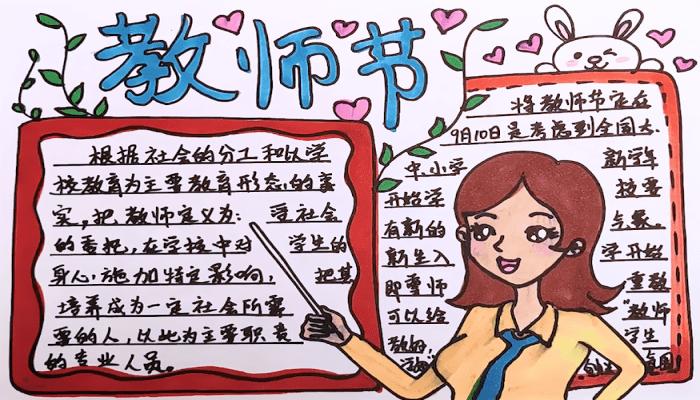 教师节
根据社会的分工和以学
校教育为主要教育形态的事
实,把教师定义为: 受社会
的委托,在学校中对 学生的
身心施加特定影响, 把其
培养成为一定社会所需
要的人,以此为主要职责
的专业人员。
将教师节定在
9月10日是考虑到全国大、
中、小学 新学年
开始学 校要
有新的 气象。
新生入 学开始
即尊师 重教
可以给 "教师
教好, 学生